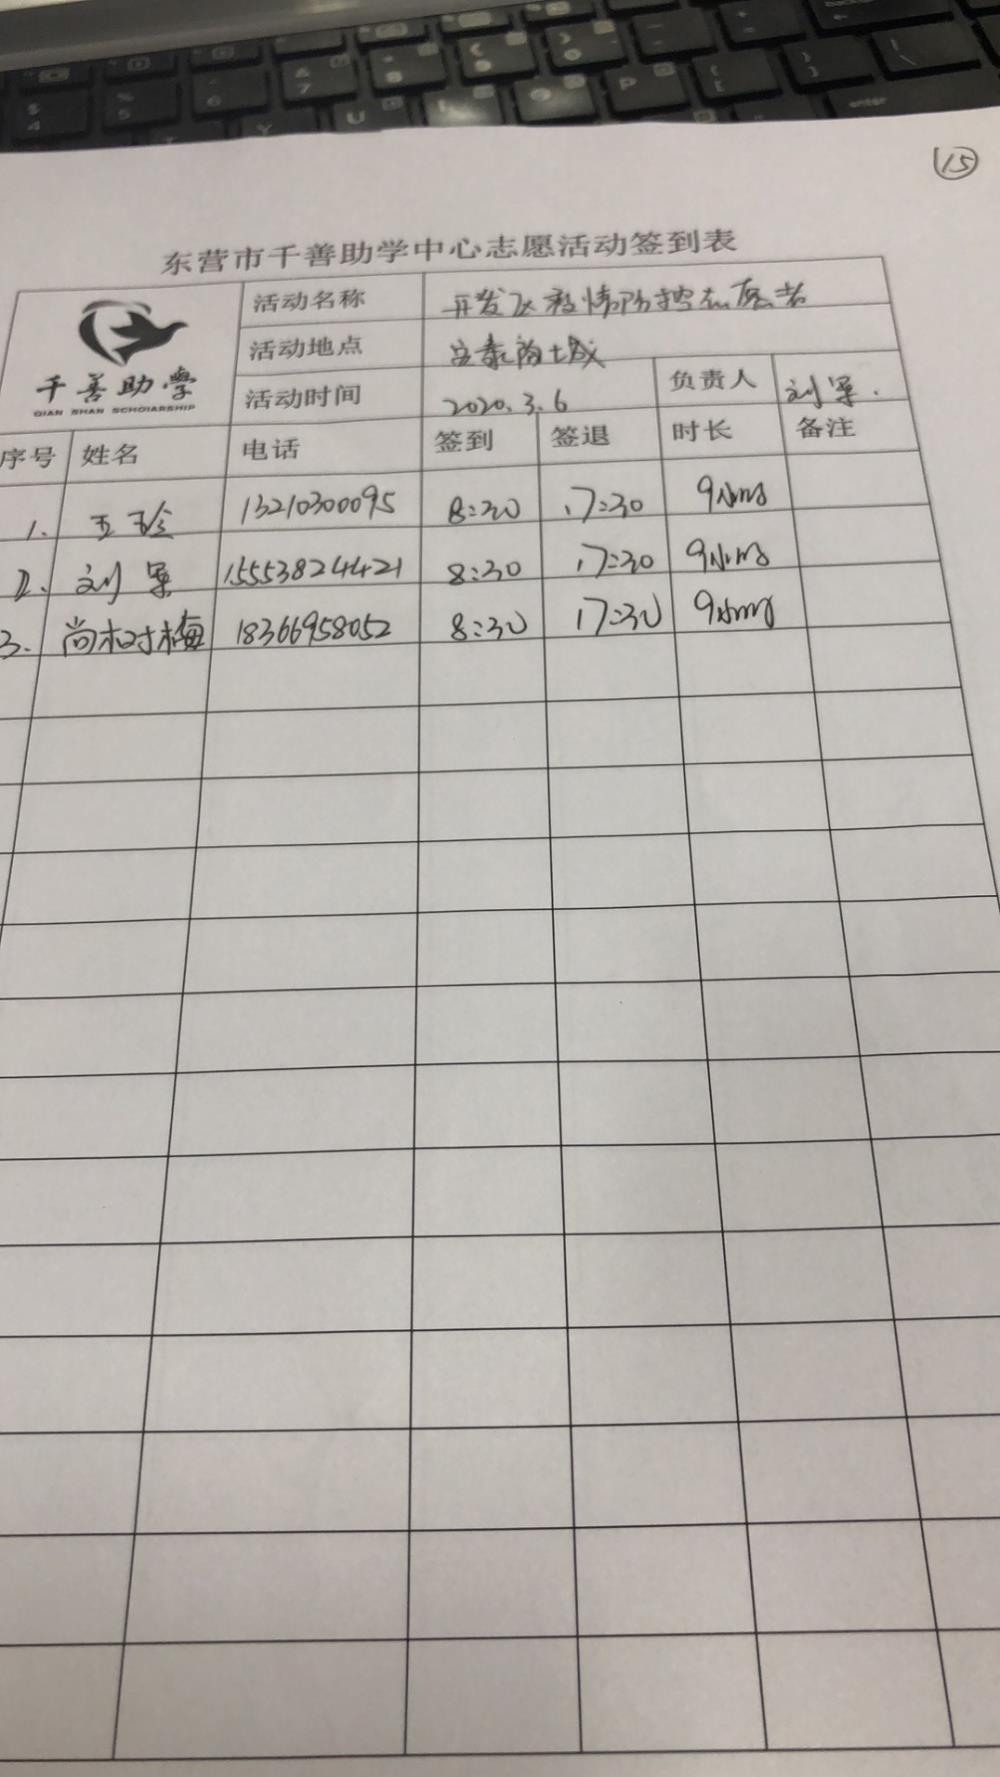 15
东营市千善助学中心志愿活动签到表
千善助学
QIAN SHAN SCHOLARSHIP
活动名称 开发区疫情防控志愿者
活动地点 尚城
活动时间 2020.3.6 负责人 刘军.
序号 姓名 电话 签到 签退 时长 备注
1. 王珍 13210300095 8:30 17:30 9小时
2. 刘军 15553824421 8:30 17:30 9小时
3. 尚树梅 18366958052 8:30 17:30 9小时